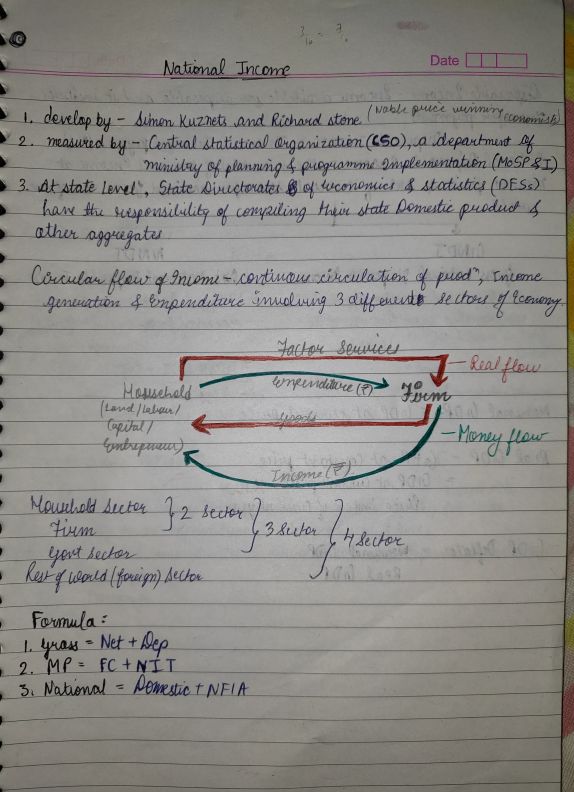 Date
National Income
1. develop by - Simon Kuznets and Richard stone (Noble price winning economists)
2. measured by - Central statistical Organization (CSO), a department of
ministry of planning & programme Implementation (MoSP&I)
3. At state level, State Directorates of economics & statistics (DESs)
have the responsibility of compiling their state Domestic product &
other aggregates
Circular flow of Income - continuous circulation of prodⁿ, Income
generation & Expenditure involving 3 different sectors of Economy.
Factor Services
- Real flow
Expenditure (₹)
Household
Firm
(Land/Labour/
Capital/
Entrepreneur)
goods
- Money flow
Income (₹)
Household Sector
Firm
Govt Sector
Rest of world (foreign) Sector
2 Sector
3 Sector
4 Sector
Formula:
1. Gross = Net + Dep
2. MP = FC + NIT
3. National = Domestic + NFIA